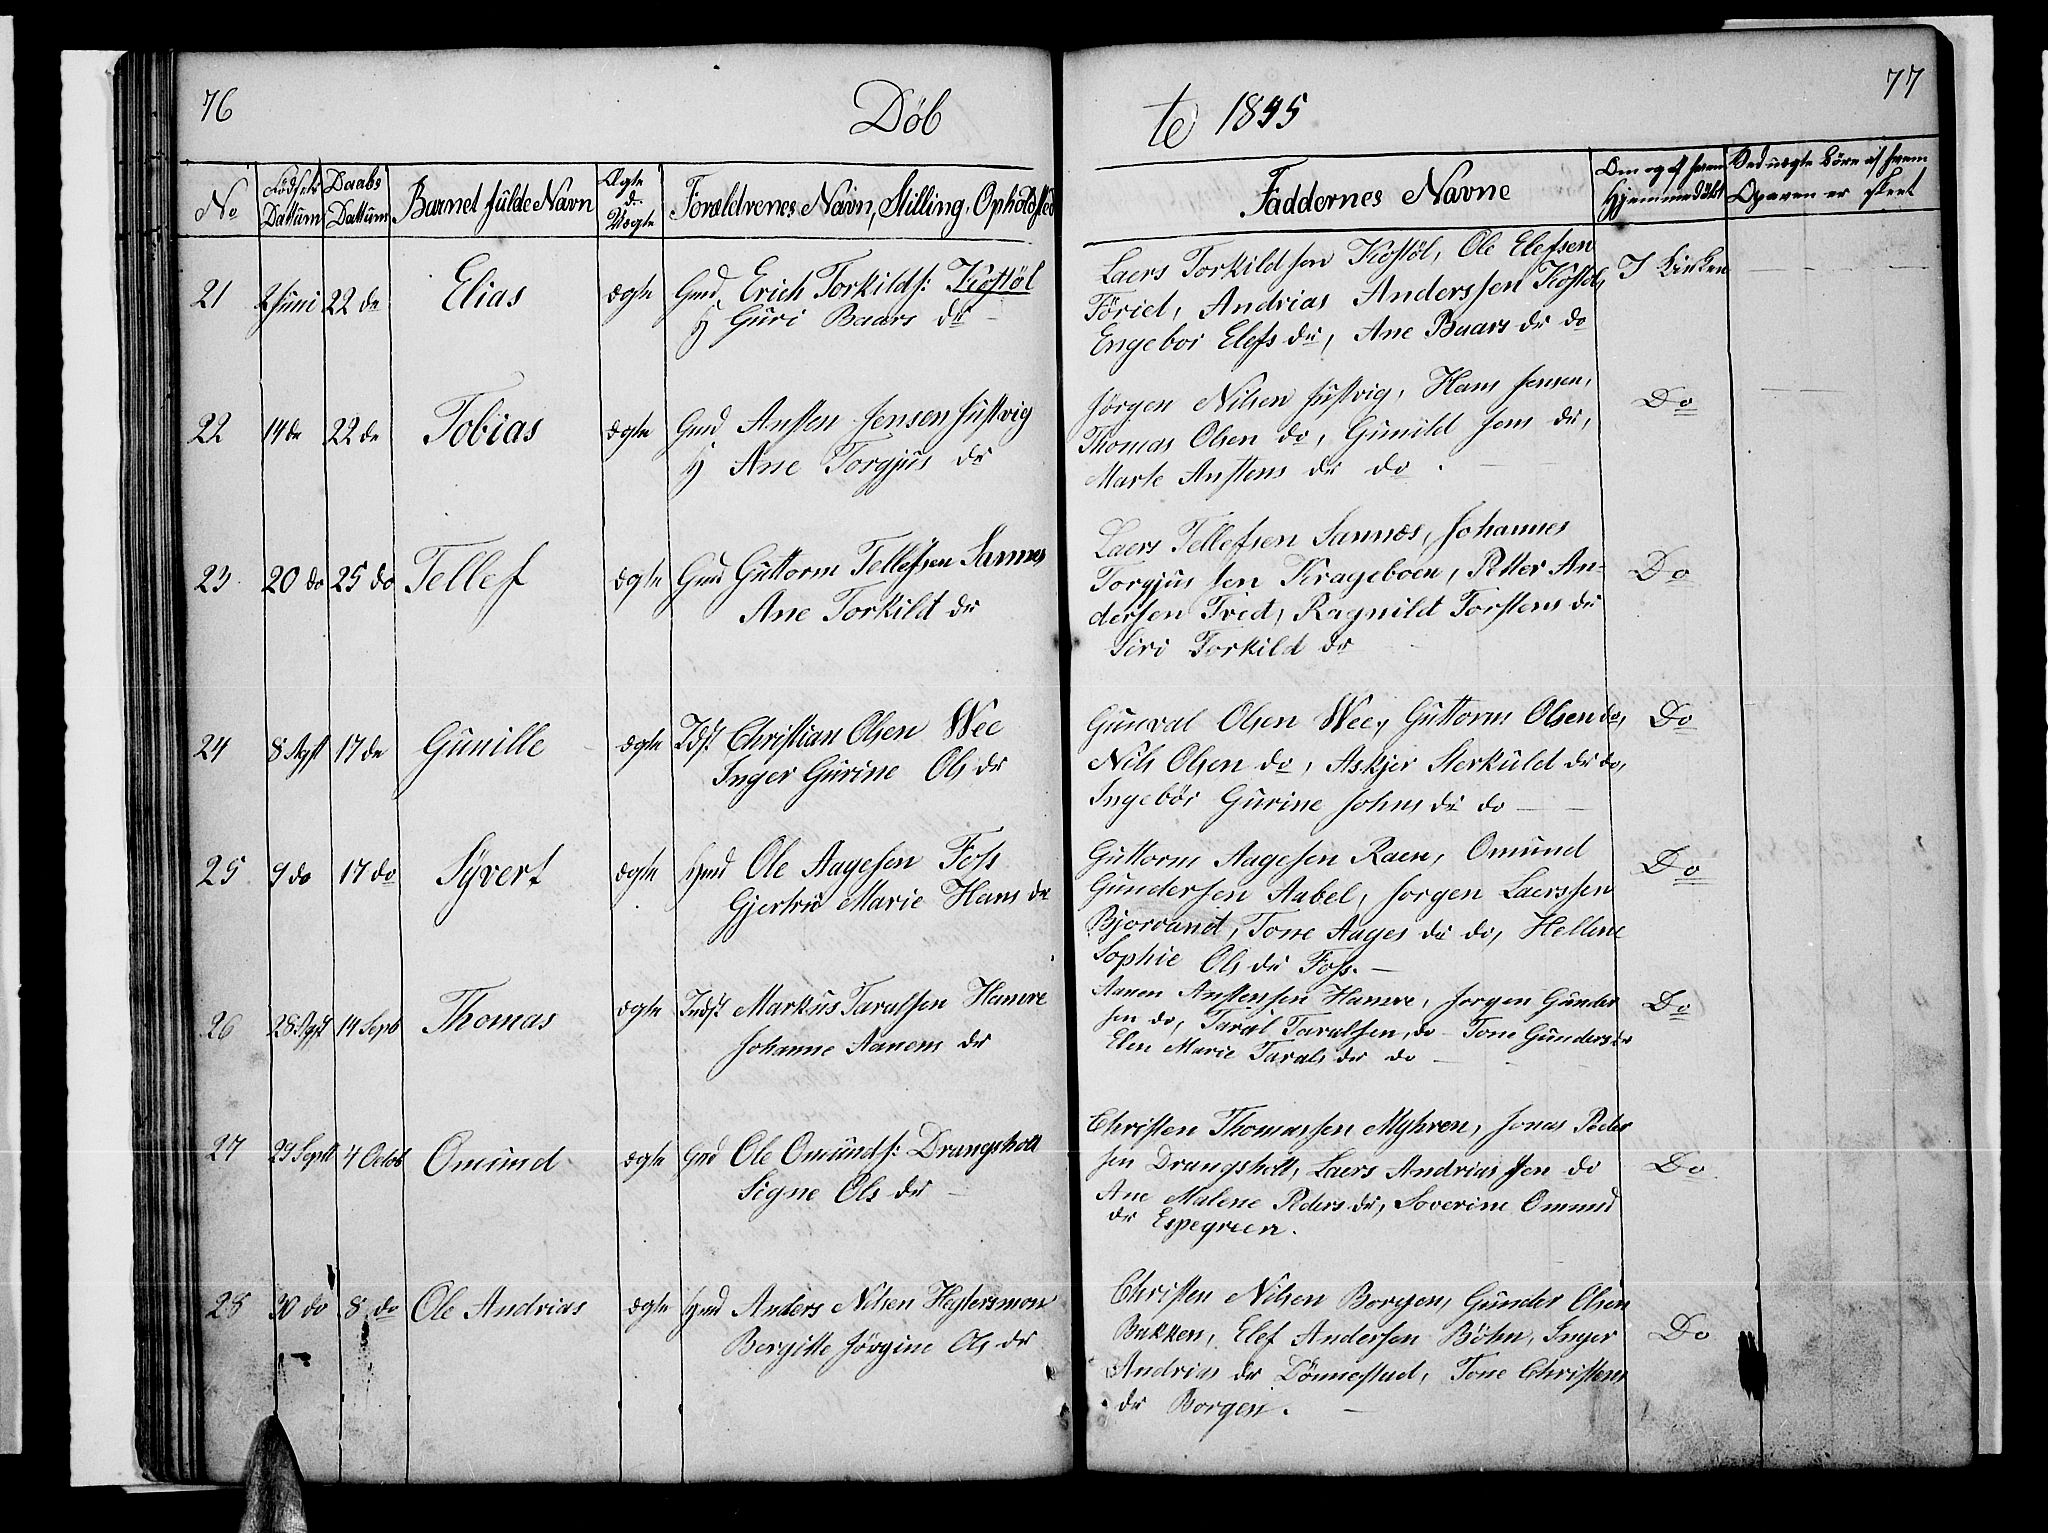 76
Döb
te 1845
77
No
Födsels Dattum
Daabs Dattum
Barnet fulde Navn
Ægte & Uægte
Forældrenes Navn, Stilling, Opholdsted
Faddernes Navne
Om og af hvem Hjemmedöbt
Ved uægte Böre af hvem Opgaven er skeet
21 2 Juni 22 de Elias ægte Gmd Erich Torkilds: Kostöl
H Guri Baars dtr
Laers Torkildsen Kostöl, Ole Elefsen
Töriet, Andrias Anderssen Kostöl,
Engebor Elefs dtr, Ane Baars dtr do
I Kirken
22 14 de 22 de Tobias ægte Gmd Ansten Jensen Justvig
H Ane Torgjus dtr
Jörgen Nilsen Justvig, Hans Jensen,
Thomas Olsen do, Gunild Jens dtr,
Marte Anstens dtr do.
Do
23 20 do 25 do Tellef ægte Gmd Guttorm Tellefsen Sannes
Ane Torkild dtr
Laers Tellefsen Sannes, Johannes
Torgjussen Krageboen, Petter An-
dersen Tved, Ragnild Torstens dtr
Siri Torkild dtr
Do
24 8 Agst 17 de Gunille ægte Idst Christian Olsen Wee
Inger Gurine Ols dtr
Gunval Olsen Wee, Guttorm Olsen do,
Nils Olsen do, Askjer Sterkuld dtr do,
Ingebör Gurine Johns dtr do
Do
25 9 do 17 do Syvert ægte Hmd Ole Aagesen Foss
Gjertru Marie Hans dtr
Guttorm Aagesen Raen, Omund
Gundersen Aabel, Jorgen Laerssen
Bjorvandt, Tone Aages dtr do, Hellene
Sophie Ols dtr Foss.
Do
26 28 Agst 14 Sepb Thomas ægte Indst Markus Taralsen Hamre
Johanne Aanens dtr
Aanen Anstensen Hamre, Jorgen Gunder
sen do, Taral Taralsen do Tone Gunders dtr
Elen Marie Tarals dtr do
Do
27 29 Septt 4 Octob Omund ægte Gmd Ole Omunds: Drangsholt
Signe Ols dtr
Christen Thomassen Myhren, Jonas Peder
sen Drangsholt, Laers Andriassen do
Ane Malene Peders dtr, Soverine Omund
dtr Espegreen.
Do
28 30 do 8 do Ole Andrias ægte Hmd Anders Nilsen Hegtersmoen
Bergitte Jörgine Ols dtr
Christen Nilsen Borgen, Gunder Olsen
Bakken, Elef Andersen Böhn, Inger
Andrias dtr Dönnestad, Tone Christens
dtr Borgen.
Do